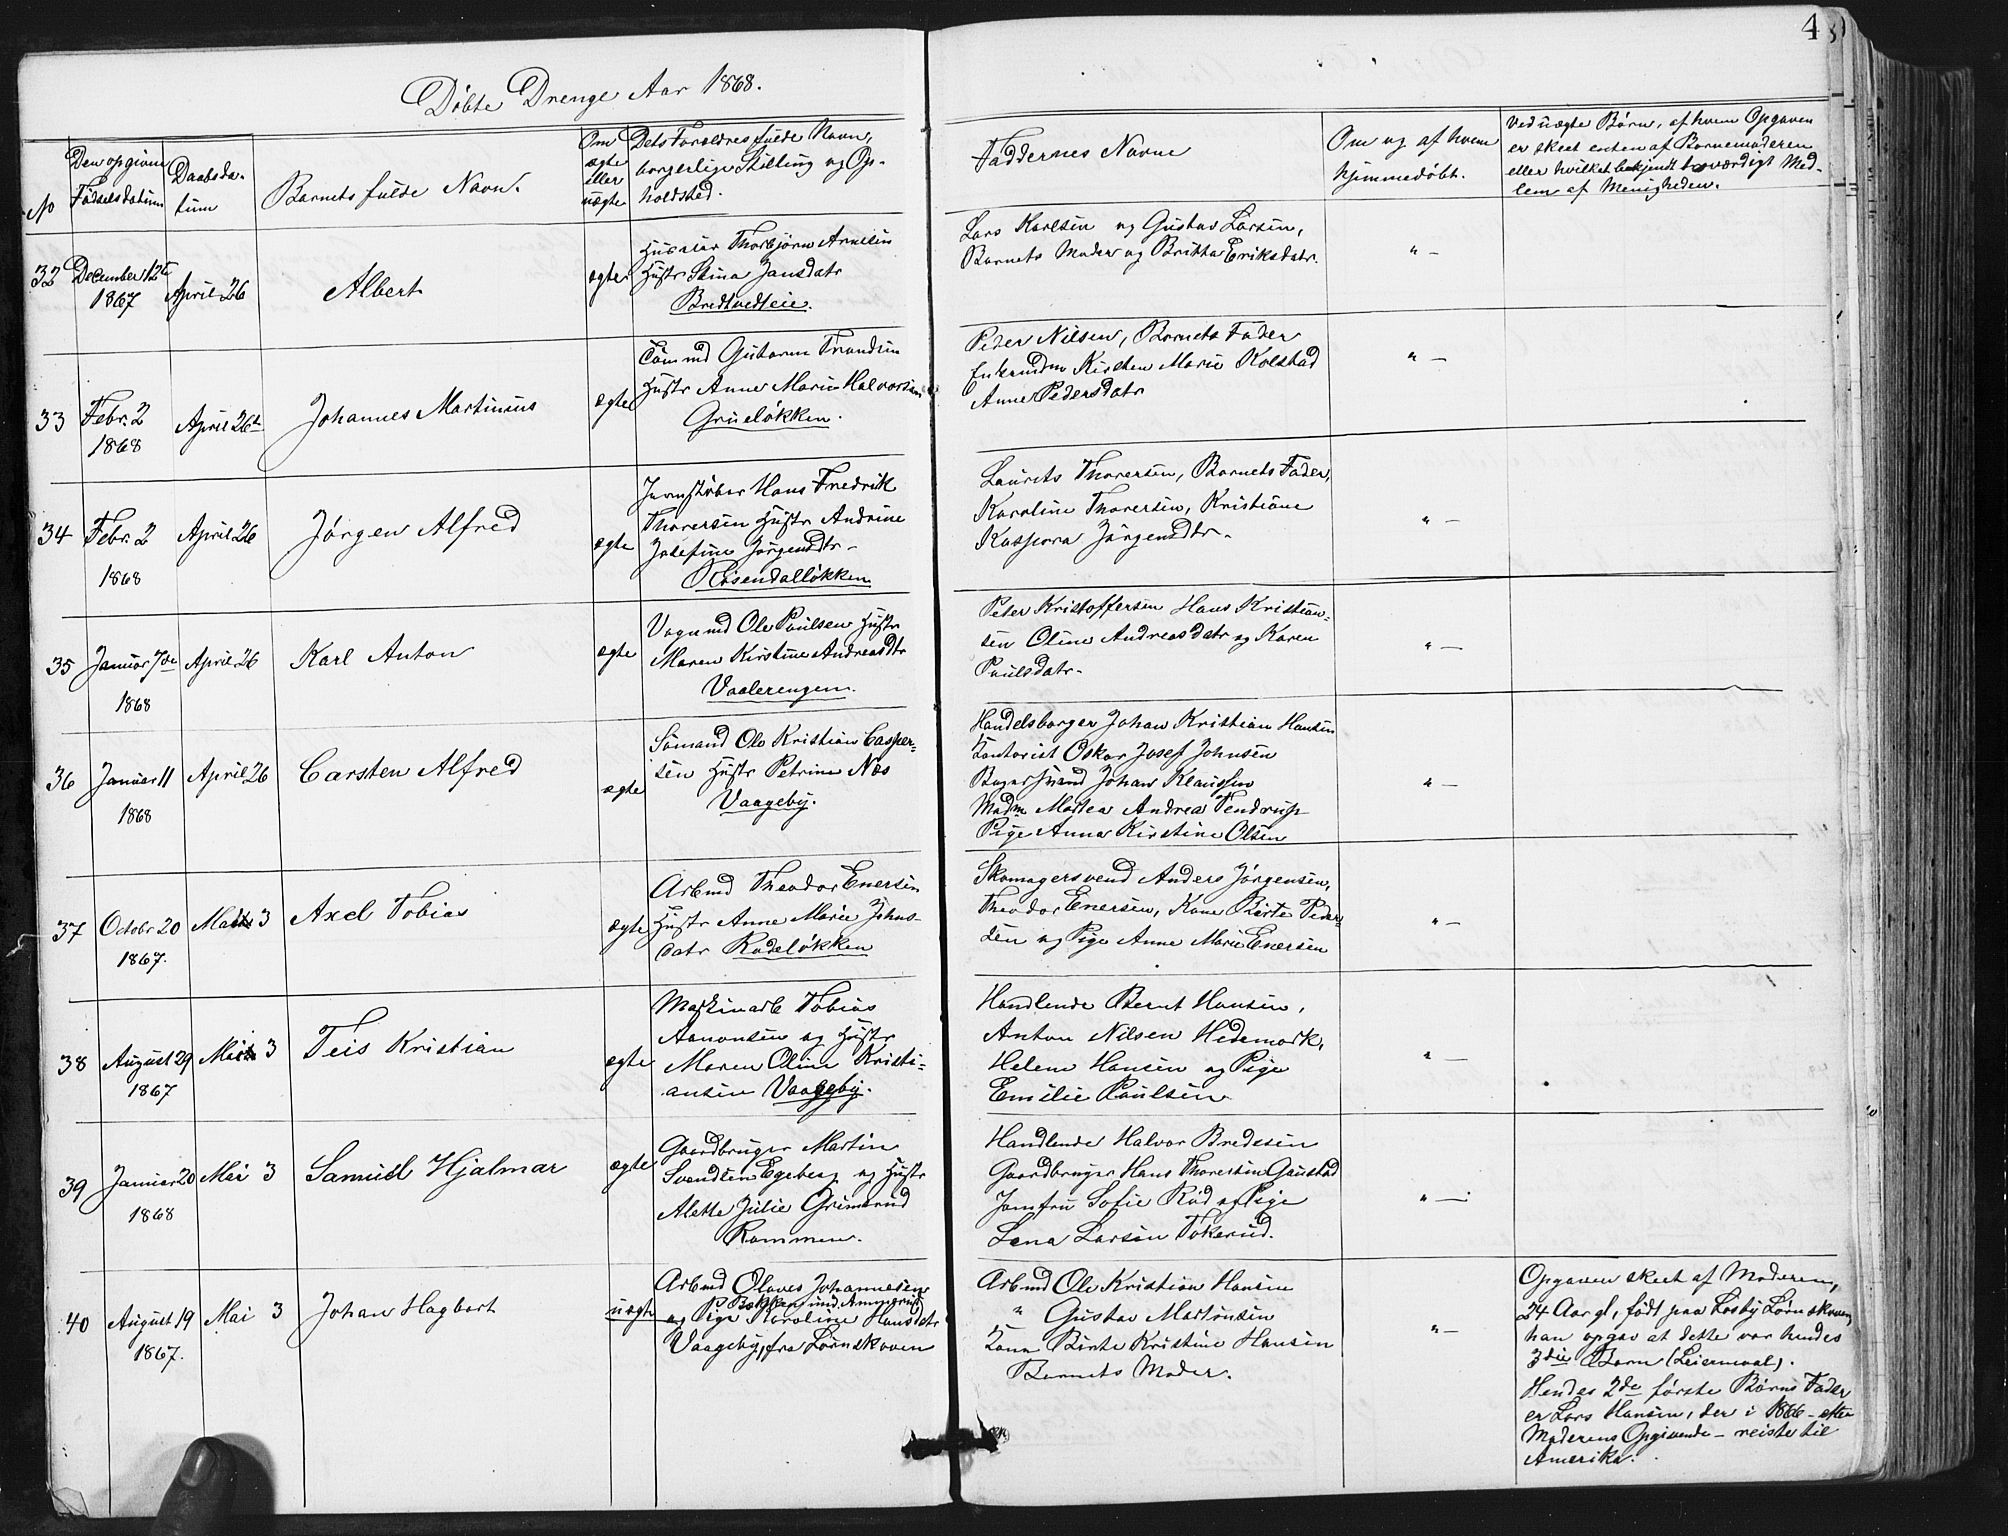 4
Döbte Drenge Aar 1868.
No
Den opgivne
Fødselsdatum
Daabsda-
tum
Barnets fulde Navn.
Om
ægte
eller
uægte
Dets Forældres fulde Navn,
borgerlige Stilling og Op-
holdsted.
Faddernes Navne
Om og af hvem
hjemmedøbt.
Ved uægte Børn, af hvem Opgaven
er skeet enten af Barnemoderen
eller hvilket bekjendt troværdigt Med-
lem af Menigheden.
32
December 12te
1867
April 26
Albert
ægte
Huseier Thorbjørn Arnesen
Hustr Stina Jansdatr
Bredtvedteie.
Lars Karlsen og Gustav Larsen,
Barnets Moder og Britha Eriksdatr.
" -
33
Febr. 2
1868
April 26t
Johannes Martinius
ægte
Tømmd Guttorm Trondsen
Hustr Anne Marie Halvorsen
Grueløkken.
Peder Nilsen, Barnets Fader
Enkemdm Kirsten Marie Kolstad
Anne Pedersdatr
" -
34
Febr. 2
1868
April 26
Jørgen Alfred
ægte
Jernstøber Hans Fredrik
Thoresen Hustr Andrine
Josefine Jørgensdtr -
Rosendalløkken
Laurits Thoresen, Barnets Fader,
Karoline Thoresen, Kristiane
Kaspara Jörgensdtr.
" -
35
Januar 7de
1868
April 26
Karl Anton
ægte
Vognmd Ole Paulsen Hustr
Maren Kirstine Andreasdtr
Vaalerengen.
Peter Kristoffersen Hans Kristian-
sen Oline Andreasdatr og Karen
Paulsdatr.
" -
36
Januar 11
1868
April 26
Carsten Alfred
ægte
Sømand Ole Kristian Casper-
sen Hustr Petrine Næs
Vaageby.
Handelsborger Johan Kristian Hansen
Kontorist Oskar Josef Johnsen
Bagersvend Johan Klaussen
Madm Mathea Andrea Tendrup
Pige Anna Kirstine Olsen
" -
37
Octobr 20
1867.
Mai 3
Axel Tobias
ægte
Arbmd Theodor Enersen
Hustr Anne Marie Johns-
datr Rodeløkken
Skomagersvend Anders Jørgensen,
Theodor Enersen, Kone Birte Peder-
sen og Pige Anne Marie Enersen
" -
38
August 29
1867
Mai 3
Teis Kristian
ægte
Maskinarb Tobias
Aanonsen og Hustr
Maren Oline Kristi-
ansen Vaageby.
Handlende Bernt Hansen,
Anton Nilsen Hedemark,
Helene Hansen og Pige
Emilie Paulsen
" -
39
Januar 20
1868
Mai 3
Samuel Hjalmar
ægte
Gaardbruger Martin
Svendsen Egeberg og Hustr
Alette Julie Grimsrud
Rommen.
Handlende Halvor Bredesen
Gaardbruger Hans Thoresen Gaustad
Jomfru Sofie Rød og Pige
Lena Larsen Tokerud.
" -
40
August 19
1867.
Mai 3
Johan Hagbart
uægte
Arbmd Olaves Johannesen
Bakken und. Ammerud
og Pige Karoline Hansdatr
Vaageby, fra Lørnskoven
Arbmd Ole Kristian Hansen
" Gustav Martinsen
Kone Birte Kristine Hansen
Barnets Moder.
" -
Opgaven skeet af Moderen,
24 Aar gl, født paa Losby Lørnskoven
hun opgav at dette var hendes
3die Barn (Leiermaal).
Hendes 2de første Børns Fader
er Lars Hansen, der i 1866 - efter
Moderens Opgivende - reiste til
Amerika.